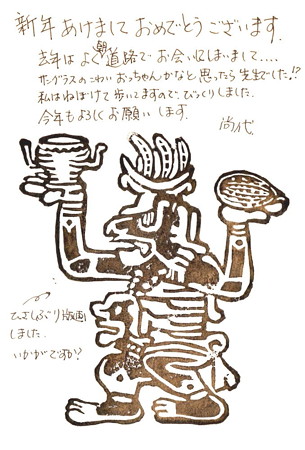 新年あけましておめでとうございます.
去年はよく朝道路でお会いしまして....
サングラスのこわいおっちゃんかなと思ったら先生でした!?
私はねぼけて歩いてますので、びっくりしました.
今年もよろしくお願いします.
尚代
ひさしぶり版画
しました.
いかがですか?